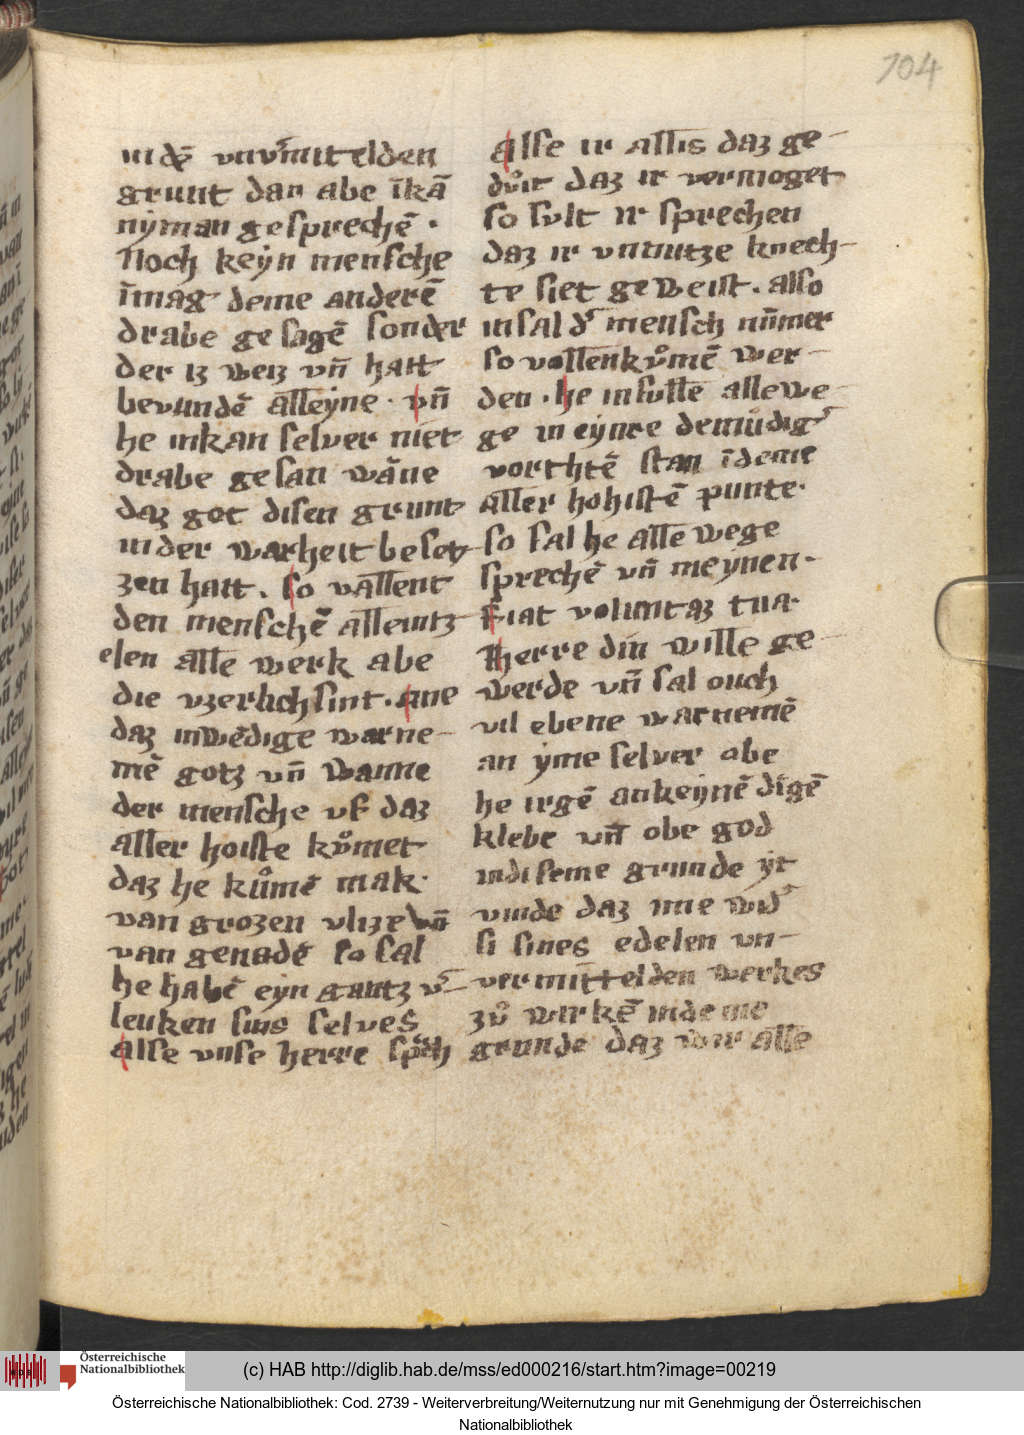 104
in dē vnv̄mitelden
grunt dan abe īkā
nyman gesprechē ·
Noch keyn mensche
īmag deme anderē
drabe gesagē sonder
der iz weiz vn̄ hatt
bevundē alleyne · vn̄
he inkan selver niet
drabe gesan wāne
daz got disen grunt
in der warheit beset
zen hatt . so vallent
den menschē alleintz
elen alle werk abe
die vzerlich sint . ane
daz inwēdige warne-
mē gotz vn̄ wanne
der mensche vf daz
aller hoiste kůmet
daz he kůmē mak ·
van grozen vlize vn̄
van genadē so sal
he habē eyn gantz v̄-
leuken sins selves
alse vnse herre sp̄ch
Alse ir allis daz ge-
důit daz ir vermoget
so sult ir sprechen
daz ir vnnutze knech-
te siet geweist . also
insal d' mensch nūmer
so vollenkůmē wer-
den . he insulle allewe-
ge in eynre demůdig'
vorthtē stan īdeme
aller hohistē punte ·
so sal he alle wege
sprechē vn̄ meynen ·
Fiat voluntaz tua ·
Herre din wille ge-
werde vn̄ sal ouch
vil ebene warnemē
an yme selver obe
he irgē ankeynē digē
klebe vn̄ obe god
indiseme grunde yt
vinde daz ime wid'
si sines edelen vn-
vermittelden werkes
zů wirkē indeme
grunde daz wir alle
Österreichische
Nationalbibliothek
(c) HAB http://diglib.hab.de/mss/ed000216/start.htm?image=00219
Österreichische Nationalbibliothek: Cod. 2739 - Weiterverbreitung/Weiternutzung nur mit Genehmigung der Österreichischen
Nationalbibliothek